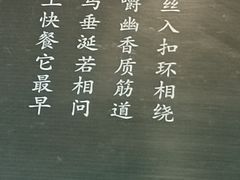 丝入扣环相绕
嚼幽香质筋道
垂涎若相问
快餐它最早